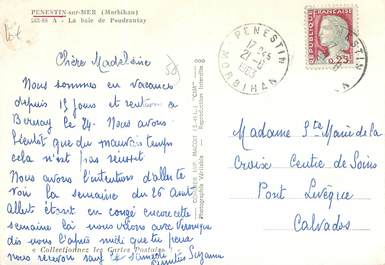 PENESTIN-sur-MER (Morbihan)
A - La baie de Poudrantay
Chère Madeleine
Nous sommes en vacances
depuis 15 jours et rentrons à
Bernay le 24. Nous avons
plutôt que du mauvais temps
cela n'est pas réussit
Nous avons l'intention d'aller te
voir la semaine du 26 Août
Albert étant en congé encore cette
semaine là nous irons avec Véronique
dis nous l'après midi que tu peux
nous recevoir sauf le samedi
Amitiés Suzanne
« Collectionnez les Cartes Postales
COMBIER IMP. MACON (S.-et-L.) "CIM"
Photographie Véritable - Reproduction Interdite
PENESTIN
17 H 45
21 -8
1963
MORBIHAN
REPUBLIQUE FRANÇAISE
0,25
Madame Ste Marie de la
Croix Centre de Soins
Pont Levêque
Calvados